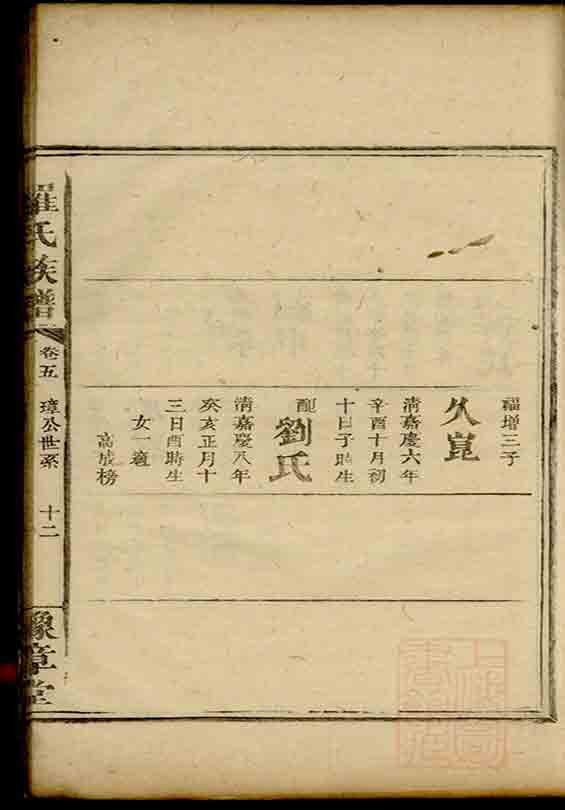 福增三子
久崑
清嘉慶六年
辛酉十月初
十日子時生
配
劉氏
清嘉慶八年
癸亥正月十
三日酉時生
女一適
高成榜
羅氏族譜
卷五
璋公世系
十二
豫章堂